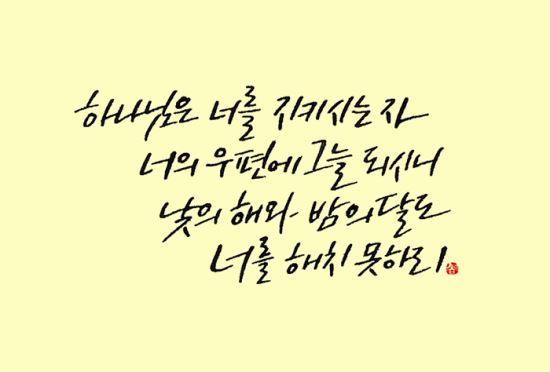 하나님은 너를 지키시는 자
너의 우편에 그늘 되시니
낮의 해와 밤의 달도
너를 해치 못하리